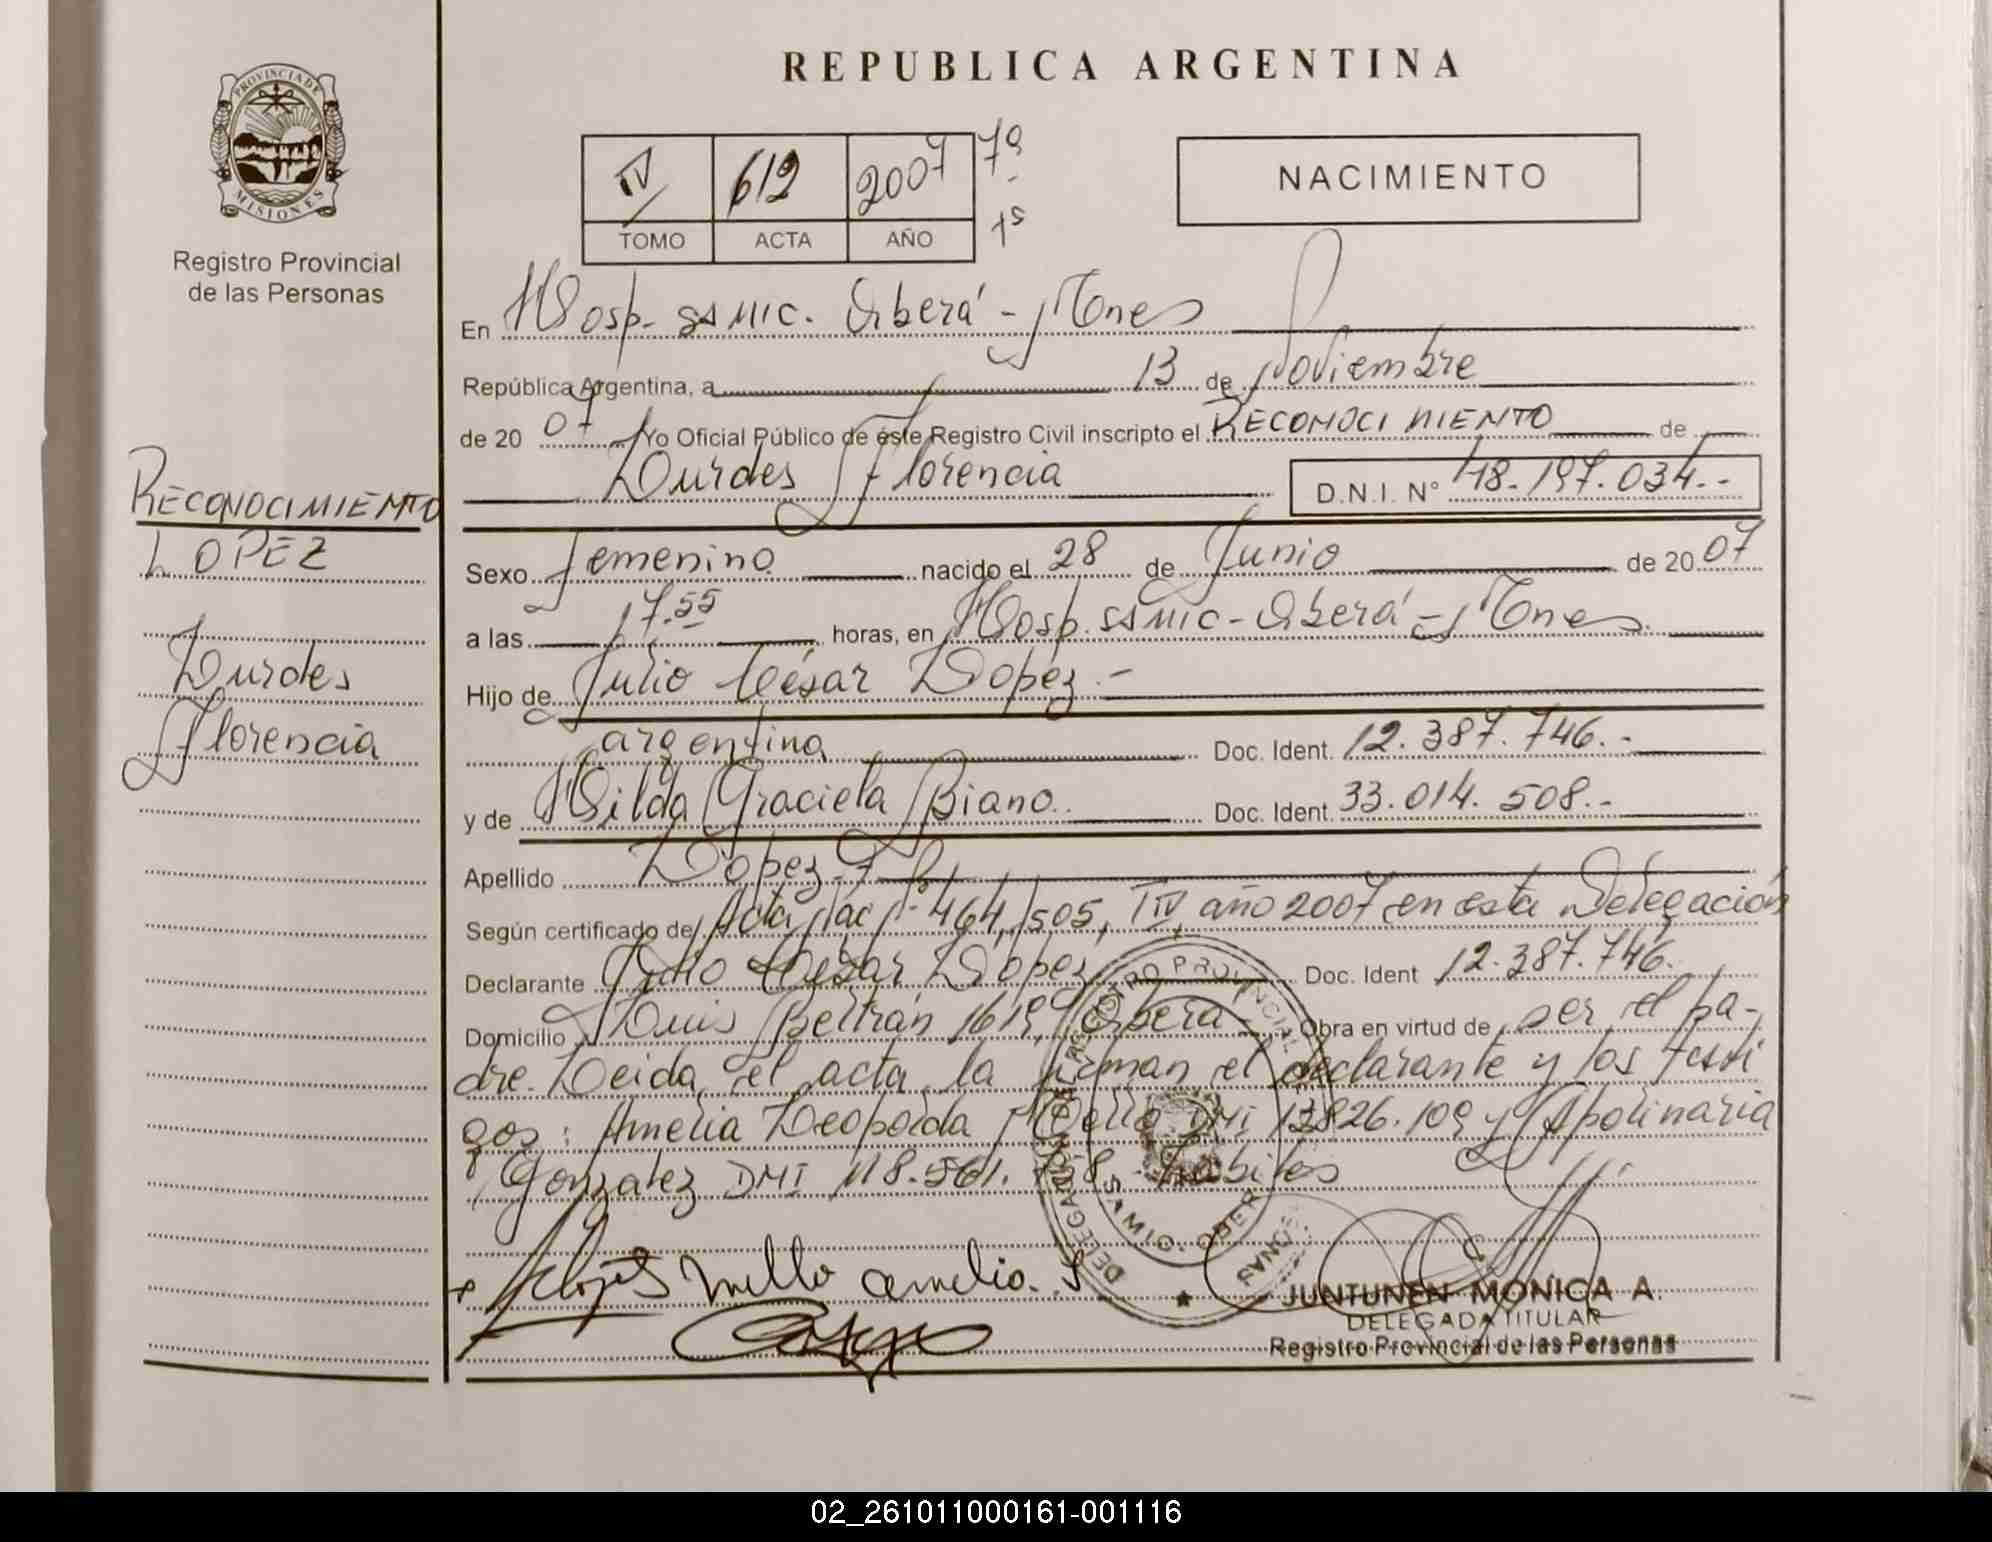 REPUBLICA ARGENTINA
PROVINCIA DE MISIONES
Registro Provincial
de las Personas
IV 612 2007 7º
TOMO ACTA AÑO 1º
NACIMIENTO
En Hosp. SAMIC. Oberá - Mnes
República Argentina, a 13 de Noviembre
de 20 07 Yo Oficial Público de éste Registro Civil inscripto el RECONOCIMIENTO de
Lourdes Florencia D.N.I. Nº 48.197.034.-
RECONOCIMIENTO
LOPEZ
Lourdes
Florencia
Sexo femenino nacido el 28 de Junio de 20 07
a las 17.55 horas, en Hosp. SAMIC - Oberá - Mnes.
Hijo de Julio César Lopez.-
argentina Doc. Ident. 12.387.746.-
y de Hilda Graciela Biano. Doc. Ident. 33.014.508.-
Apellido Lopez
Según certificado de Acta Nac Nº 464, 505, TIV año 2007 en esta Delegación
Declarante Julio César Lopez Doc. Ident 12.387.746.
Domicilio Luis Beltrán 1619, Oberá - Obra en virtud de ser el pa-
dre. Leida el acta la firman el declarante y los testi
gos: Amelia Leopolda Mello DNI 13826.109 y Apolinaria
Gonzalez DNI habiles
REGISTRO PROVINCIAL
DELEGACIÓN
SAMIC. OBERA
Mello Amelia. L
JUNTUNEN MONICA A.
DELEGADA TITULAR
Registro Provincial de las Personas
02_261011000161-001116